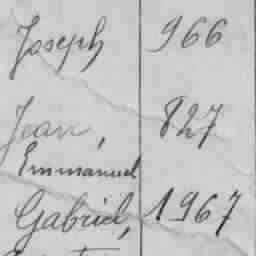 Joseph 966
Jean, 827
Emmanuel
Gabriel, 1967